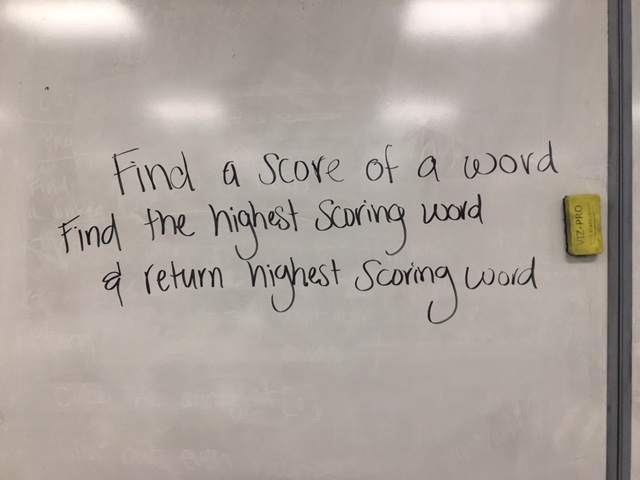 Find a score of a word
Find the highest scoring word
& return highest scoring word
VIZ-PRO